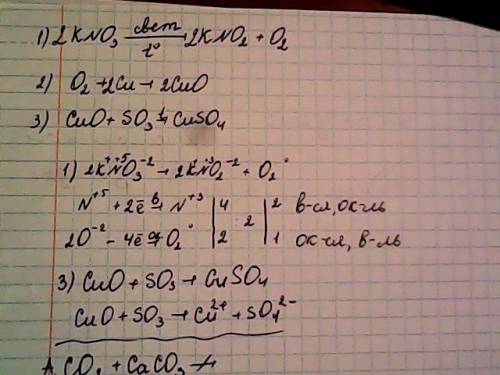 1) 2KNO₃ свет/t° → 2KNO₂ + O₂
2) O₂ + 2Cu → 2CuO
3) CuO + SO₃ → CuSO₄
1) 2K⁺N⁺⁵O₃⁻² → 2K⁺N⁺³O₂⁻² + O₂°
N⁺⁵ + 2ē → N⁺³ | 4 | 2 | 2 в-ся, ок-ль
2O⁻² - 4ē → O₂° | 2 | 1 ок-ся, в-ль
3) CuO + SO₃ → CuSO₄
CuO + SO₃ → Cu²⁺ + SO₄²⁻